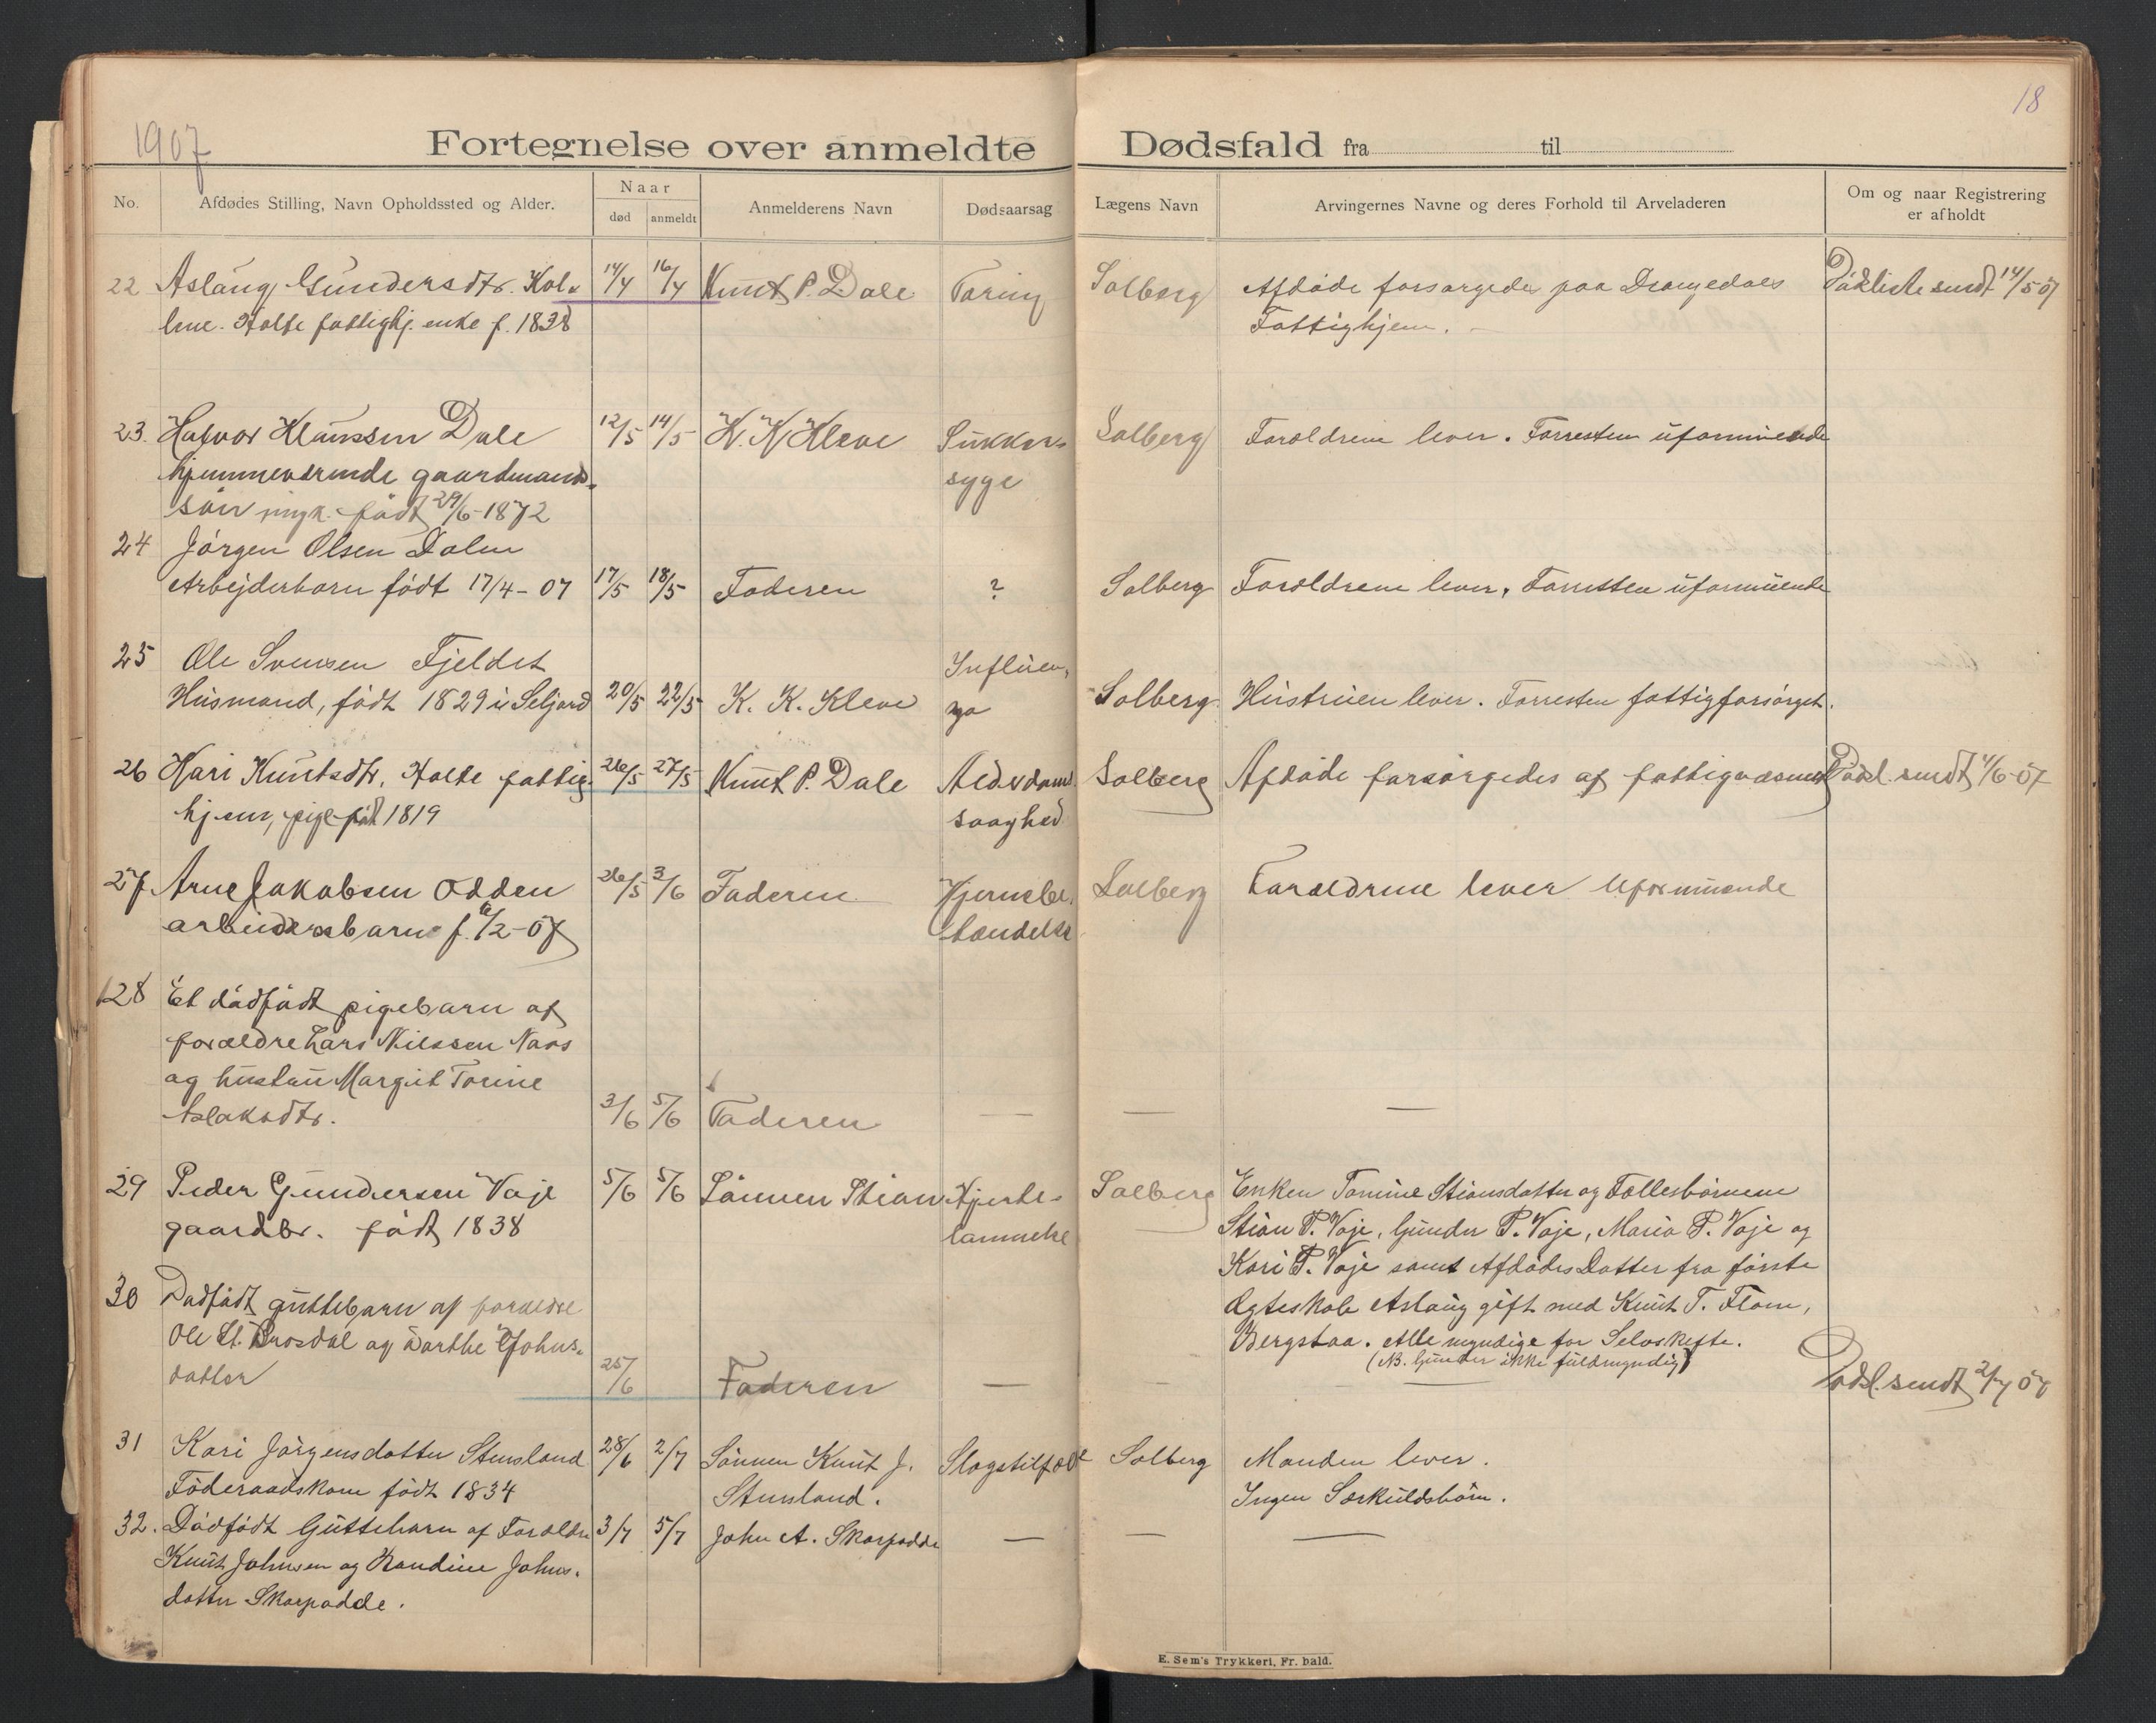 1907
18
Fortegnelse over anmeldte Dødsfald fra til
No.
Afdødes Stilling, Navn Opholdssted og Alder.
Naar
død
anmeldt
Anmelderens Navn
Dødsaarsag
Lægens Navn
Arvingernes Navne og deres Forhold til Arveladeren
Om og naar Registrering
er afholdt
22 Aslaug Gundersdtr. 14/4 16/4 Knut P. Dale Tæring Solberg Afdøde forsørgedes paa Drangedals Dødsliste sendt 14/5 07
Holte fattighj. enke f. 1838 Fattighjem.
23. Halvor Klaussen Dale 12/5 14/5 K. K Kleve Sukker- Solberg Forældrene lever. Forresten uformuende
hjemmeværende gaardmands- syge
søn født 29/6-1872
24 Jørgen Olsen Dalen
Arbejderbarn født 17/4-07 17/5 18/5 Faderen ? Solberg Forældrene lever. Forresten uformuende
25 Ole Svensen Fjeldet Influen-
Husmand, født 1829 i Seljord 20/5 22/5 K. K. Kleve za Solberg Hustruen lever. Forresten fattigforsørget.
26 Kari Knutsdtr. Holte fattig- 26/5 27/5 Knut P. Dale Alderdoms Solberg Afdøde forsørgedes af fattigvæsenet Dødsl. sendt 1/6-07
hjem, pige født 1819 svaghed
27 Arne Jakobsen Odden 26/5 3/6 Faderen Hjernebe- Solberg Forældrene lever uformuende
arbeidersbarn f. 6/2-07 tændelse
28 Et dødfødt pigebarn af
forældre Lars Nilssen Naas
og hustru Margit Torine
Aslaksdtr. 3/6 5/6 Faderen — — —
29 Peder Gundersen Voje 5/6 5/6 Sønnen Stian Hjerte- Solberg Enken Tomine Stiansdatter og Fællesbørnene
gaardbr. født 1838 lammelse Stian P. Voje, Gunder P. Voje, Maria P. Voje og
Kari P. Voje samt Afdødes Datter fra første
Ægteskab Aslaug gift med Knut T. Flom,
Bergstaa. Alle myndige for Selvskifte.
(NB. Gunder ikke fuldmyndig)
30 Dødfødt guttebarn af forældre
Ole St. Brosdal og Dorthe Johns-
datter 25/6 Faderen — — — Dødsl. sendt 2/7 07
31 Kari Jørgensdatter Stensland 28/6 2/7 Sønnen Knut J. Slagetilfælde Solberg Manden lever.
Føderaadskone født 1834 Stensland. Ingen Særkuldsbørn.
32. Dødfødt Guttebarn af Forældre 3/7 5/7 John A. Skarpodde — — —
Knut Johnsen og Johns-
datter Skarpodde.
E. Sem's Trykkeri, Fr. hald.